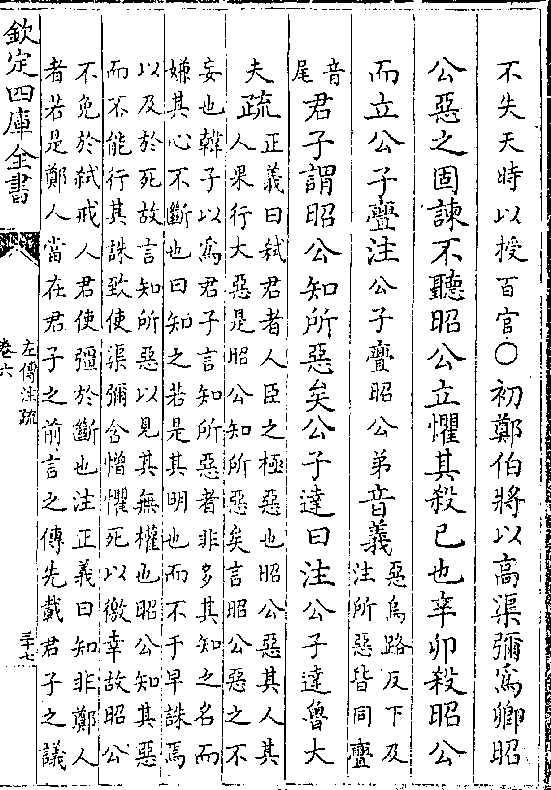 不失天時以授百官○初鄭伯將以高渠彌為卿昭
公惡之固諫不聽昭公立懼其殺已也辛卯殺昭公
而立公子亹注公子亹昭公弟音義惡烏路反下及
注所惡皆同亹
音
尾君子謂昭公知所惡矣公子達曰注公子達魯大
夫疏正義曰弑君者人臣之極惡也昭公惡其人其
人果行大惡是昭公知所惡矣言昭公惡之不
妄也韓子以為君子言知所惡者非多其知之名而
嫌其心不斷也曰知之若是其明也而不于早誅焉
以及於死故言知所惡以見其無權也昭公知其惡
而不能行其誅致使渠彌含憎懼死以徼幸故昭公
不免於弑戒人君使彊於斷也注正義曰知非鄭人
者若是鄭人當在君子之前言之傳先載君子之議
欽定四庫全書
左傳注疏
卷六
三十七